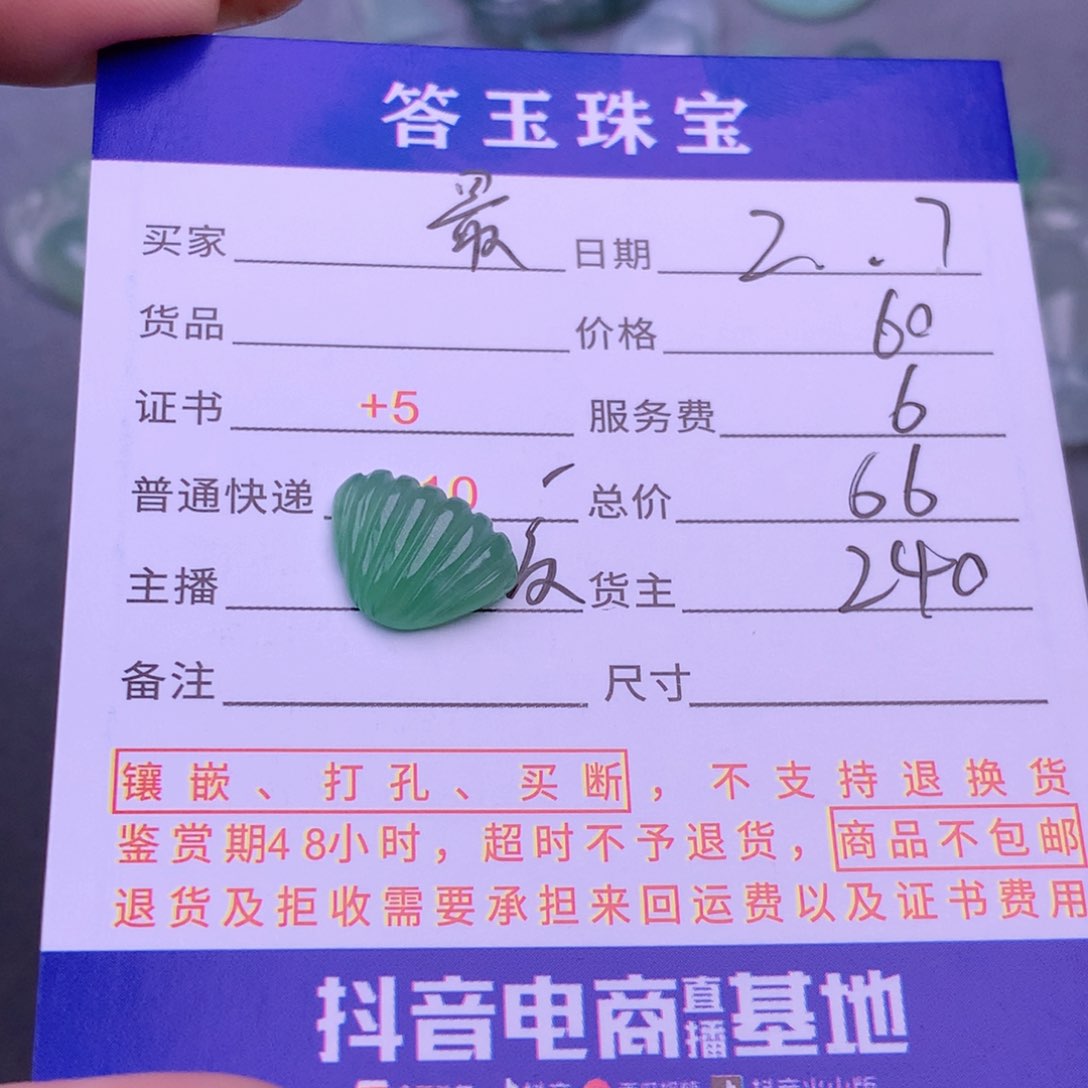 答玉珠宝
买家 最 日期 2.7
货品 价格 60
证书 +5 服务费 6
普通快递 10 总价 66
主播 货主 240
备注 尺寸
镶嵌、打孔、买断，不支持退换货
鉴赏期48小时，超时不予退货，商品不包邮
退货及拒收需要承担来回运费以及证书费用
抖音电商直播基地